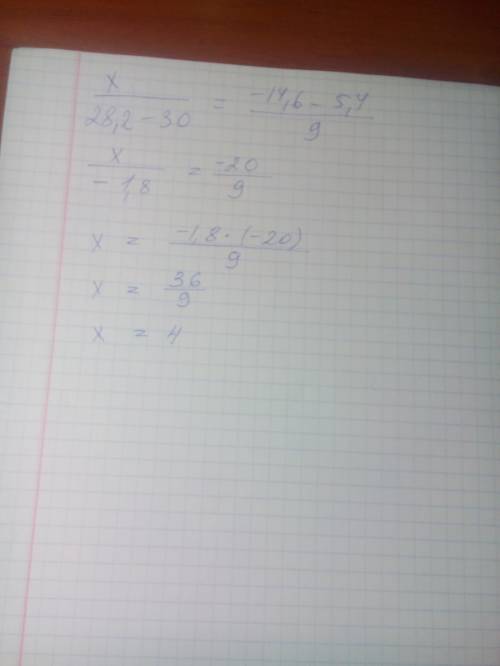 x / (28,2 - 30) = (-14,6 - 5,4) / 9
x / (-1,8) = -20 / 9
x = -1,8 · (-20) / 9
x = 36 / 9
x = 4